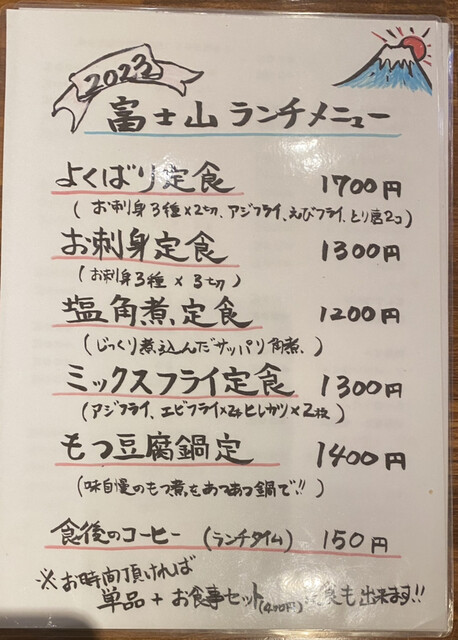 2023
富士山 ランチメニュー
よくばり定食 1700円
(お刺身3種×2切、アジフライ、えびフライ、とり唐2コ)
お刺身定食 1300円
(お刺身3種 × 3切)
塩角煮定食 1200円
(じっくり煮込んだサッパリ角煮、)
ミックスフライ定食 1300円
(アジフライ、エビフライ×2 ヒレカツ×2枚)
もつ豆腐鍋定 1400円
(味自慢のもつ煮をあつあつ鍋で!!)
食後のコーヒー (ランチタイム) 150円
※お時間頂ければ
単品+お食事セット(400円) も出来ます!!